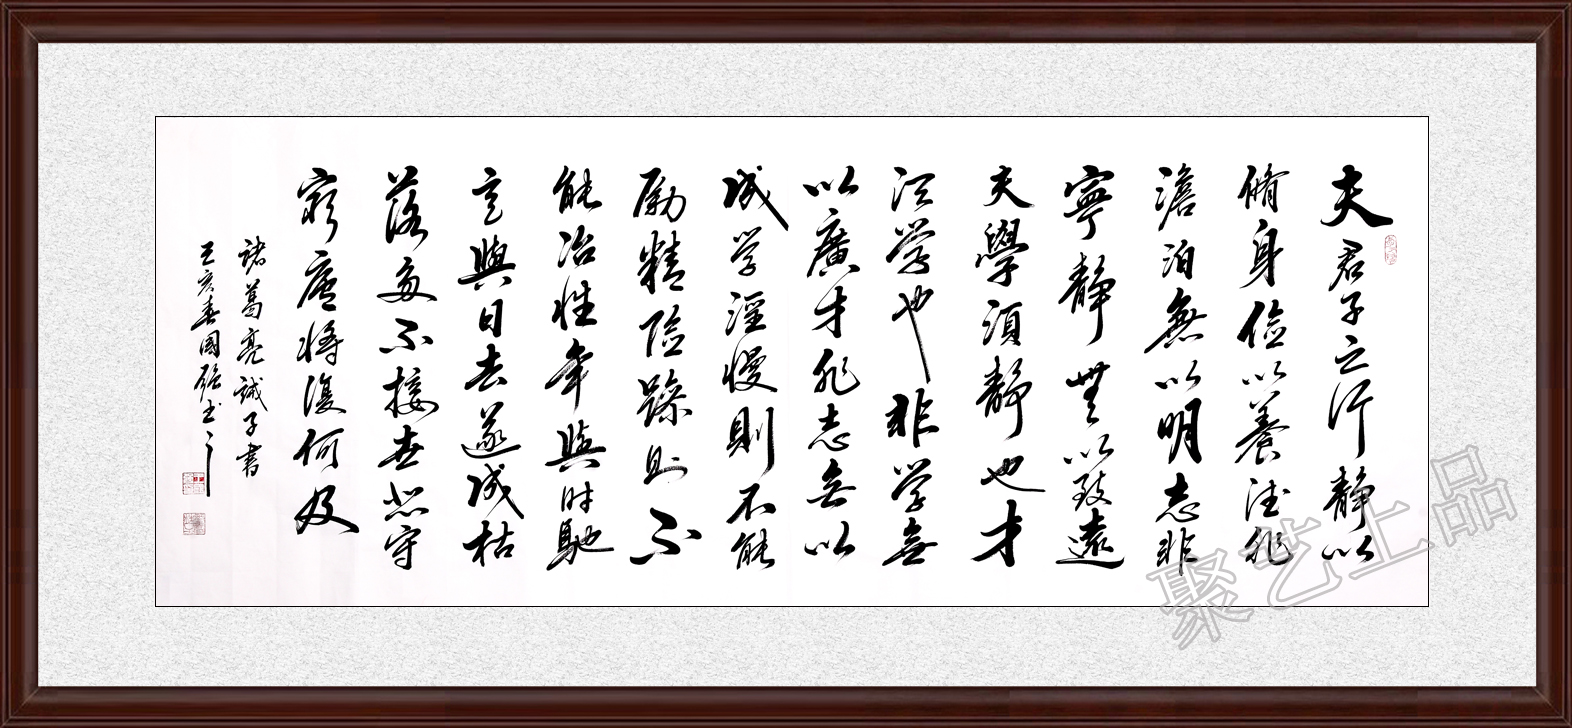 夫君子之行静以
脩身俭以養德非
澹泊無以明志非
寧静無以致遠
夫學須静也才
須学也非学無
以廣才非志無以
成学淫慢則不能
励精险躁则不
能冶性年與时馳
意與日去遂成枯
落多不接世悲守
窮廬将復何及
诸葛亮誡子書
亥春國强书
聚艺上品